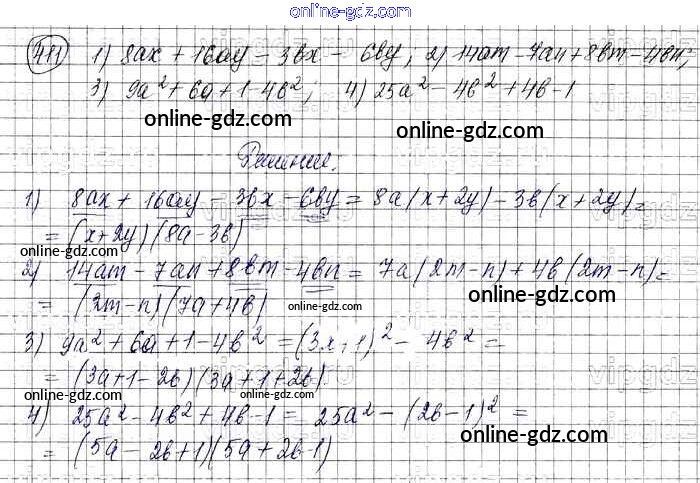 online-gdz.com
411 1) 8ax + 16ay - 3bx - 6by; 2) 14am - 7an + 8bm - 4bn;
3) 9a² + 6a + 1 - 4b², 4) 25a² - 4b² + 4b - 1
online-gdz.com online-gdz.com
Решение.
1) 8ax + 16ay - 3bx - 6by = 8a(x + 2y) - 3b(x + 2y) =
= (x + 2y)(8a - 3b)
online-gdz.com
2) 14am - 7an + 8bm - 4bn = 7a(2m - n) + 4b(2m - n) =
= (2m - n)(7a + 4b)
online-gdz.com online-gdz.com
3) 9a² + 6a + 1 - 4b² = (3x + 1)² - 4b² =
= (3a + 1 - 2b)(3a + 1 + 2b)
online-gdz.com
4) 25a² - 4b² + 4b - 1 = 25a² - (2b - 1)² =
= (5a - 2b + 1)(5a + 2b - 1)
online-gdz.com